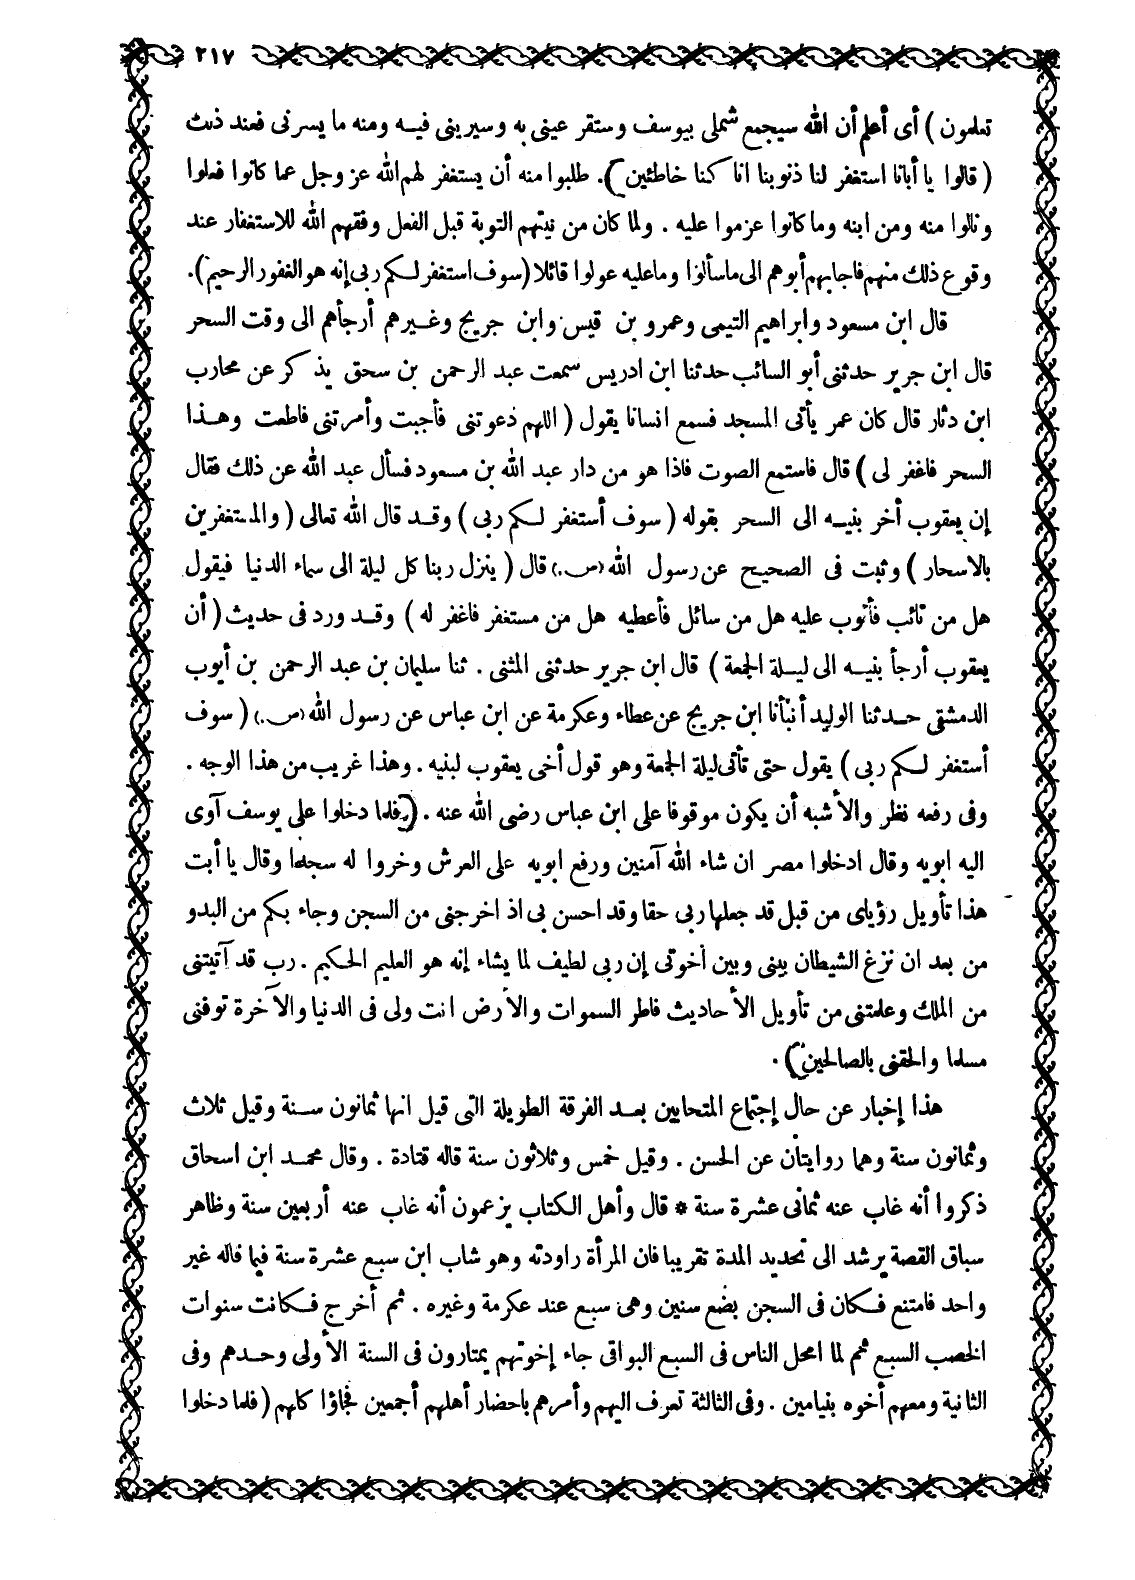 ٢١٧
تعلمون ) أى أعلم أن الله سيجمع شملى بيوسف وستقر عينى به وسيرينى فيه ومنه ما يسرنى فعند ذلك
( قالوا يا أبانا استغفر لنا ذنوبنا انا كنا خاطئين ). طلبوا منه أن يستغفر لهم الله عز وجل عما كانوا فعلوا
ونالوا منه ومن ابنه وما كانوا عزموا عليه . ولما كان من نيتهم التوبة قبل الفعل وفقهم الله للاستغفار عند
وقوع ذلك منهم فاجابهم أبوهم الى ما سألوا وما عليه عولوا قائلا (سوف استغفر لكم ربى إنه هو الغفور الرحيم).
قال ابن مسعود وابراهيم التيمى وعمرو بن قيس وابن جريج وغيرهم أرجأهم الى وقت السحر
قال ابن جرير حدثنى أبو السائب حدثنا ابن ادريس سمعت عبد الرحمن بن سحق يذكر عن محارب
ابن دثار قال كان عمر يأتى المسجد فسمع انسانا يقول ( اللهم دعوتنى فأجبت وأمرتنى فاطعت وهذا
السحر فاغفر لى ) قال فاستمع الصوت فاذا هو من دار عبد الله بن مسعود فسأل عبد الله عن ذلك فقال
إن يعقوب أخر بنيه الى السحر بقوله ( سوف أستغفر لكم ربى ) وقد قال الله تعالى ( والمستغفرين
بالاسحار ) وثبت فى الصحيح عن رسول الله (ص.) قال ( ينزل ربنا كل ليلة الى سماء الدنيا فيقول
هل من تائب فأتوب عليه هل من سائل فأعطيه هل من مستغفر فاغفر له ) وقد ورد فى حديث ( أن
يعقوب أرجأ بنيه الى ليلة الجمعة ) قال ابن جرير حدثنى المثنى . ثنا سليمان بن عبد الرحمن بن أيوب
الدمشقى حدثنا الوليد أنبأنا ابن جريج عن عطاء وعكرمة عن ابن عباس عن رسول الله (ص.) ( سوف
أستغفر لكم ربى ) يقول حتى تأتى ليلة الجمعة وهو قول أخى يعقوب لبنيه . وهذا غريب من هذا الوجه .
وفى رفعه نظر والأشبه أن يكون موقوفا على ابن عباس رضى الله عنه . ( فلما دخلوا على يوسف آوى
اليه ابويه وقال ادخلوا مصر ان شاء الله آمنين ورفع ابويه على العرش وخروا له سجدا وقال يا أبت
هذا تأويل رؤياى من قبل قد جعلها ربى حقا وقد احسن بى اذ اخرجنى من السجن وجاء بكم من البدو
من بعد ان نزغ الشيطان بينى وبين أخوتى إن ربى لطيف لما يشاء إنه هو العليم الحكيم . رب قد آتيتنى
من الملك وعلمتنى من تأويل الأحاديث فاطر السموات والأرض انت ولى فى الدنيا والآخرة توفنى
مسلما والحقنى بالصالحين ) .
هذا إخبار عن حال إجتماع المتحابين بعد الفرقة الطويلة التى قيل انها ثمانون سنة وقيل ثلاث
وثمانون سنة وهما روايتان عن الحسن . وقيل خمس وثلاثون سنة قاله قتادة . وقال محمد ابن اسحاق
ذكروا أنه غاب عنه ثمانى عشرة سنة * قال وأهل الكتاب يزعمون أنه غاب عنه أربعين سنة وظاهر
سباق القصة يرشد الى تحديد المدة تقريبا فان المرأة راودته وهو شاب ابن سبع عشرة سنة فيما قاله غير
واحد فامتنع فكان فى السجن بضع سنين وهى سبع عند عكرمة وغيره . ثم أخرج فكانت سنوات
الخصب السبع ثم لما امحل الناس فى السبع البواقى جاء إخوتهم يمتارون فى السنة الأولى وحدهم وفى
الثانية ومعهم أخوه بنيامين . وفى الثالثة تعرف اليهم وأمرهم باحضار أهلهم أجمعين فجاؤا كلهم ( فلما دخلوا